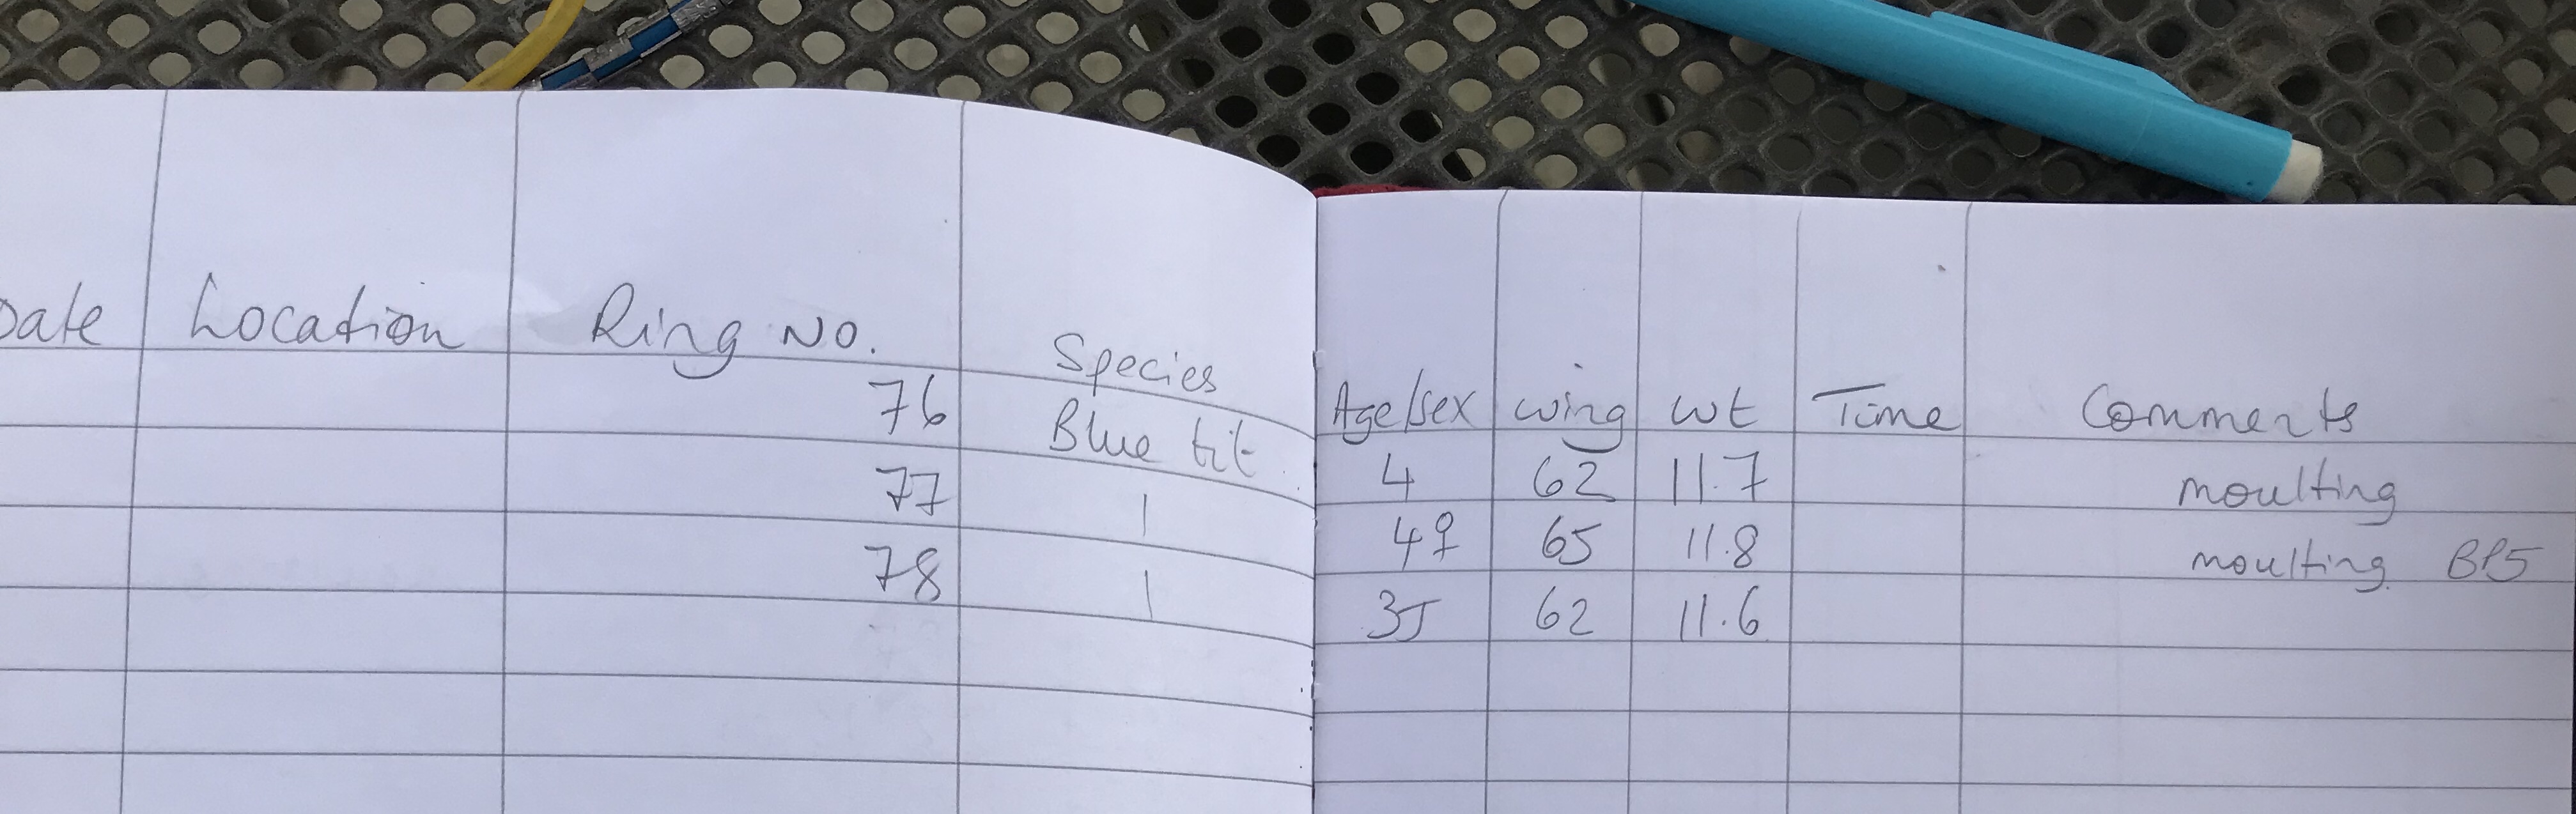 Date Location Ring No. Species Age/sex wing wt Time Comments
76 Blue tit 4 62 11.7 moulting
77 | 4♀ 65 11.8 moulting BP5
78 | 3J 62 11.6